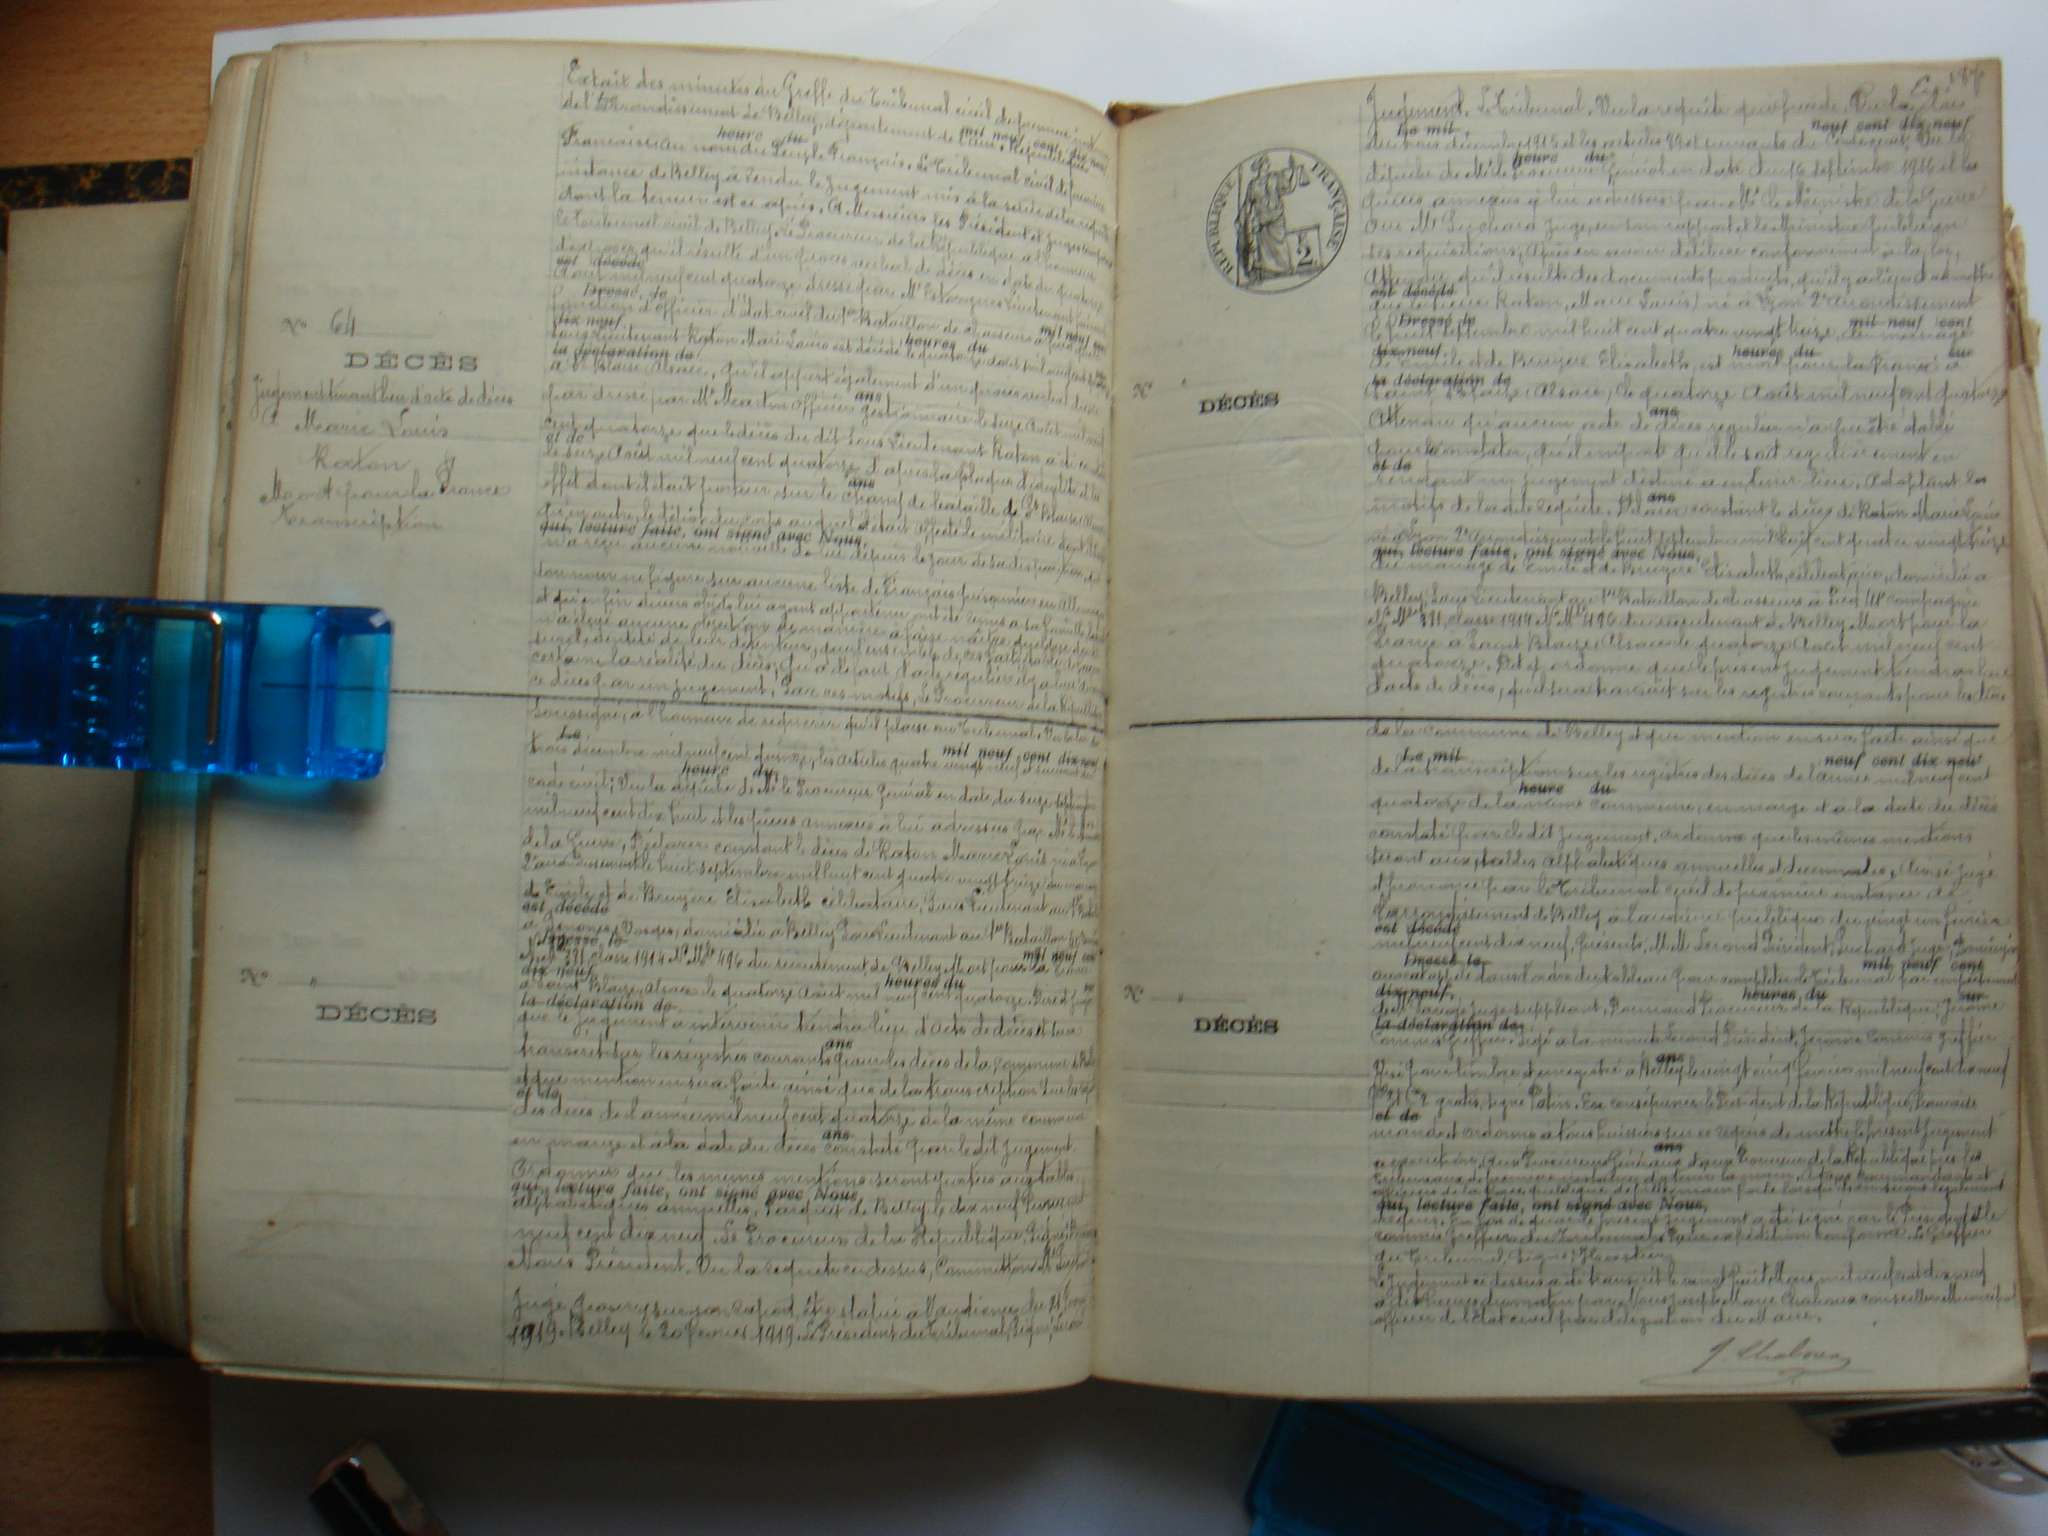 Extrait des minutes du Greffe du Tribunal civil de première inst
de l'Arrondissement de Belley, département de l'Ain. République
mil neuf cent dix neuf
heure du
Française au nom du Peuple Français. Le Tribunal civil de première
instance de Belley a rendu le Jugement mis à la suite de la requête
dont la teneur est ci après. A Messieurs les Président et Juges composant
le Tribunal civil de Belley. Le Procureur de la République a l'honneur
d'exposer qu'il résulte d'un procès verbal de décès en date du quatorze
est décédé
Août mil neuf cent quatorze dressé par Mr Lieutenant
Dressé le
fonction d'officier d'état civil du 1er Bataillon de chasseurs à pied que le
dix neuf
mil neuf cent
sous lieutenant Raton Marie Louis est décédé le quatorze Août mil neuf cent
heures du
la déclaration de
à St Blaise Alsace, qu'il appert également d'un procès verbal dressé
par dressé par Mr Martin officier gestionnaire le seize Août mil neuf
ans
cent quatorze que le décès du dit Sous Lieutenant Raton a été
et de
le seize Août mil neuf cent quatorze d'après la plaque d'identité et le
effet dont il était porteur sur le champ de bataille de St Blaise
ans
qu'en outre le dépôt du corps auquel était affecté le militaire
qui, lecture faite, ont signé avec Nous,
n'a reçu aucune nouvelle de lui depuis le jour de sa disparition,
son nom ne figure sur aucune liste de Français prisonniers en Allemagne
et qu'enfin divers objets lui ayant appartenu ont été remis à sa famille
n'a élevé aucune objection de manière à faire naître quelque doute
sur l'identité de leur détenteur, qu'un ensemble de ces faits
certain la réalité du décès; Qu'à défaut d'acte régulier il y a lieu
ce décès par un jugement; Par ces motifs, Le Procureur de la République
soussigné, à l'honneur de requérir qu'il plaise au Tribunal, Vu la loi
Le
trois décembre mil neuf cent quinze, les articles quatre vingt neuf et suivants
mil neuf cent dix neuf
heure du
code civil; Vu la dépêche de Mr le Procureur Général en date du seize septembre
mil neuf cent dix huit et les pièces annexes à lui adressées par Mr le Ministre
de la Guerre, Déclarer constant le décès de Raton Marie Louis né à Lyon
2e arrondissement le huit septembre mil huit cent quatre vingt treize du mariage
de Emile et de Bruyère Elisabeth célibataire, Sous Lieutenant au 1er
est décédé
à Senones, Vosges, domicilié à Belley Sous Lieutenant au 1er Bataillon
Dressé le
No Mle 331 classe 1914 No Mle 496 du recrutement de Belley Mort pour la France
mil neuf cent
dix neuf
à Saint Blaise, Alsace le quatorze Août mil neuf cent quatorze. Dire
heures du
la déclaration de
que le jugement à intervenir tiendra lieu d'acte de décès et sera
transcrit sur les registres courants pour les décès de la commune de Belley
ans
et que mention en sera faite ainsi que de la transcription sur les registres
et de
des décès de l'année mil neuf cent quatorze de la même commune
en marge et à la date du décès constaté par le dit jugement.
ans
Ordonner que les mêmes mentions seront portées aux tables
qui, lecture faite, ont signé avec Nous,
alphabétiques annuelles, Parquet de Belley le dix neuf Février mil
neuf cent dix neuf. Le Procureur de la République. Signé
Nous Président. Vu la requête ci dessus, Commettons Mr
Juge pour sur son rapport être statué à l'audience du 21 Février
1919. Belley le 20 Février 1919. Le Président du Tribunal, Signé
No 64
DÉCÈS
Jugement tenant lieu d'acte de décès
Marie Louis
Raton
Mort pour la France
Transcription
No "
DÉCÈS
187
Jugement. Le Tribunal. Vu la requête qui précède, Vu la loi
Le mil
neuf cent dix neuf
du trois décembre 1915 et les articles 89 et suivants du Code civil. Vu la
heure du
dépêche de Mr le Procureur Général en date du 16 septembre 1918 et les
pièces annexes à lui adressées par Mr le Ministre de la Guerre
Ouï Mr Juge, en son rapport et le Ministère public en
ses réquisitions, Après en avoir délibéré conformément à la loi,
Attendu qu'il résulte des documents produits, qu'il y a lieu d'admettre
est décédé
que le sieur Raton, Marie Louis, né à Lyon 2e arrondissement
Dressé le
le huit septembre mil huit cent quatre vingt treize, du mariage
mil neuf cent
dix neuf
heures du
sur
de Emile et de Bruyère Elisabeth, est mort pour la France à
la déclaration de
Saint Blaise, Alsace, le quatorze Août mil neuf cent quatorze
ans
Attendu qu'aucun acte de décès régulier n'a pu être établi
pour le constater, qu'il importe qu'il le soit régulièrement en
et de
rendant un jugement destiné à en tenir lieu. Adoptant les
ans
motifs de la dite requête. Déclare constant le décès de Raton Marie Louis
né à Lyon 2e arrondissement le huit septembre mil huit cent quatre vingt treize
qui, lecture faite, ont signé avec Nous,
du mariage de Emile et de Bruyère Elisabeth, célibataire, domicilié à
Belley Sous Lieutenant au 1er Bataillon de chasseurs à pied 4e compagnie
No Mle 331, classe 1914 No Mle 496 du recrutement de Belley Mort pour la
France à Saint Blaise, Alsace le quatorze Août mil neuf cent
quatorze. Dit et ordonne que le présent jugement tiendra lieu
d'acte de décès, qu'il sera transcrit sur les registres courants pour les décès
de la commune de Belley et que mention en sera faite ainsi que
Le mil
neuf cent dix neuf
de la transcription sur les registres des décès de l'année mil neuf cent
heure du
quatorze de la même commune, en marge et à la date du décès
constaté par le dit jugement. Ordonne que les mêmes mentions
seront aux tables alphabétiques annuelles et décennales, Ainsi jugé
et prononcé par le Tribunal civil de première instance de
l'arrondissement de Belley à l'audience publique du vingt un février
est décédé
mil neuf cent dix neuf, Présents, MM Président, Juge,
Dressé le
mil neuf cent
avocat appelé dans l'ordre du tableau pour compléter le Tribunal par empêchement
dix neuf,
heures du
sur
Juge suppléant, Procureur de la République, Jérome
la déclaration de
Commis greffier. Signé à la minute Président, Jérome Commis greffier
ans
Visé pour timbre et enregistré à Belley le vingt février mil neuf cent dix neuf
gratis, signé Patin. En conséquence le Président de la République Française
et de
mande et ordonne à tous huissiers sur ce requis de mettre le présent jugement
ans
à exécution, Aux Procureurs Généraux et aux Procureurs de la République près les
Tribunaux de première instance d'y tenir la main, et à tous Commandants et
officiers de la force publique de prêter main forte lorsqu'ils en seront légalement
qui, lecture faite, ont signé avec Nous,
requis. En foi de quoi le présent jugement a été signé par le Président et le
commis greffier du Tribunal. Pour expédition conforme. Le Greffier
du Tribunal, Signé:
Le jugement ci dessus a été transcrit le vingt huit Mars mil neuf cent dix neuf
à dix heures du matin par Nous Joseph Chaboux conseiller Municipal
officier de l'état civil par délégation du Maire.
J. Chaboux
RÉPUBLIQUE FRANÇAISE
2
No "
DÉCÈS
No "
DÉCÈS